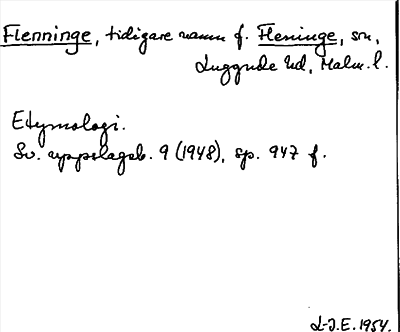 Flenninge, tidigare namn f. Fleninge, sn,
Luggude hd, Malm. l.
Etymologi.
Sv. uppslagsb. 9 (1948), sp. 947 f.
L-J.E. 1954.